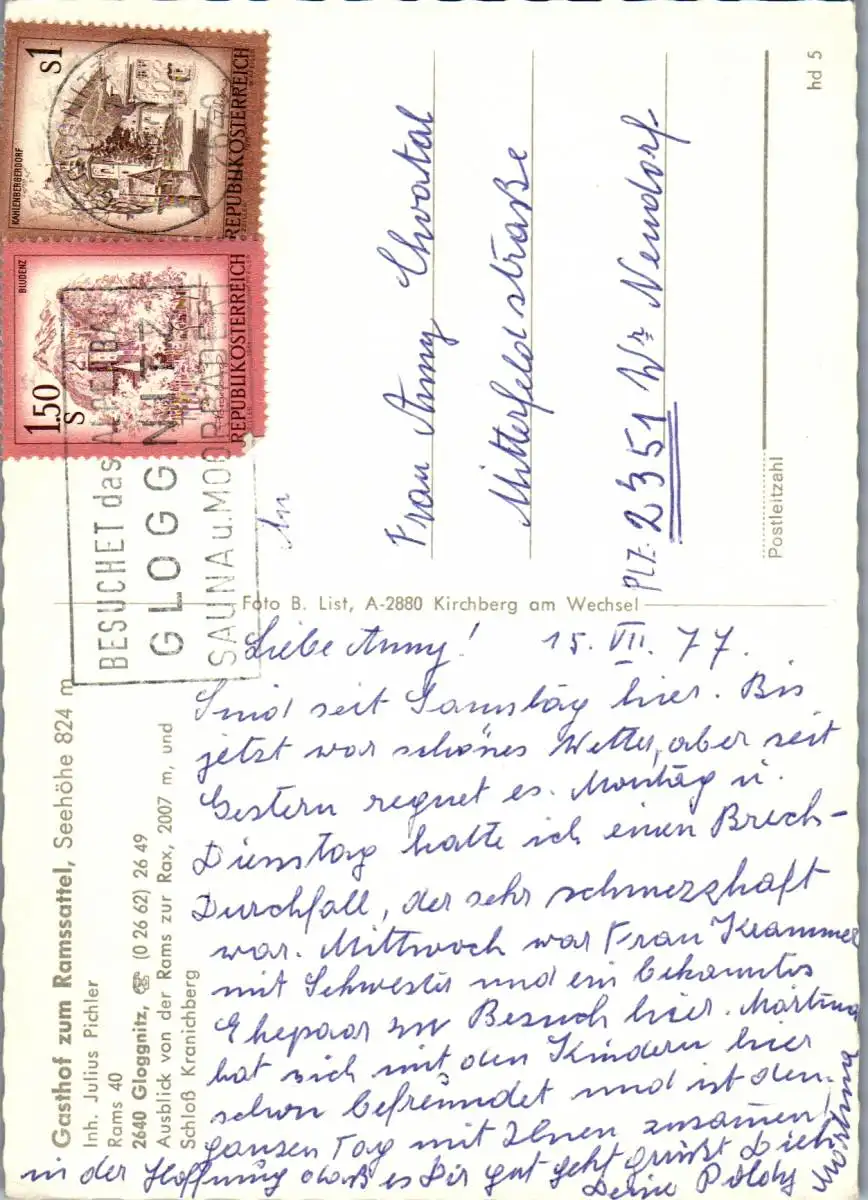 Gasthof zum Ramssattel, Seehöhe 824 m
Inh. Julius Pichler
Rams 40
2640 Gloggnitz, ☏ (0 26 62) 26 49
Ausblick von der Rams zur Rax, 2007 m, und
Schloß Kranichberg
Foto B. List, A-2880 Kirchberg am Wechsel
hd 5
s1
KAHLENBERGERDORF
REPUBLIK ÖSTERREICH
1.50
S
BLUDENZ
REPUBLIK ÖSTERREICH
2640
BESUCHET das
GLOGGNITZ
SAUNA u. MOORBÄDER
An
Frau Anny Chvatal
Mitterfeldstraße
PLZ. 2351 Wr Neudorf
Postleitzahl
Liebe Anny! 15. VII. 77.
Sind seit Samstag hier. Bis
jetzt war schönes Wetter, aber seit
Gestern regnet es. Montag u.
Dienstag hatte ich einen Brech-
Durchfall, der sehr schmerzhaft
war. Mittwoch war Frau Krammer
mit Schwester und ein bekanntes
Ehepaar zu Besuch hier. Martina
hat sich mit den Kindern hier
schon befreundet und ist den
ganzen Tag mit Ihnen zusamen,
in der Hoffnung daß es Dir gut geht grüßt Dich
Deine Poldy
Martina